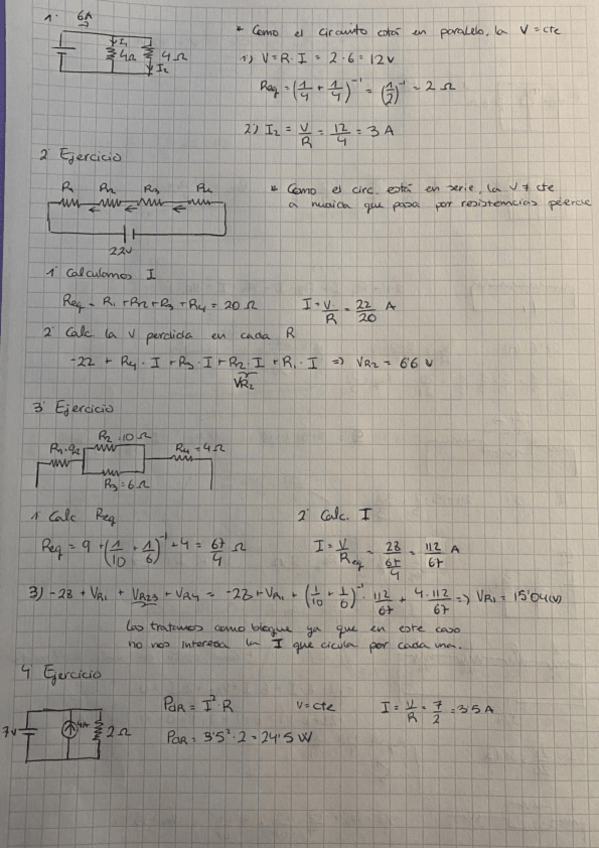 1. 6A
I₁ 4Ω 4Ω
I₂
* Como el circuito está en paralelo, la V = cte
1) V = R · I = 2 · 6 = 12 V
Req = (1/4 + 1/4)⁻¹ = (1/2)⁻¹ = 2 Ω
2) I₂ = V/R = 12/4 = 3 A
2 Ejercicio
R₁ R₂ R₃ R₄
22V
* Como el circ. está en serie, la V ≠ cte
que pasa por resistencias pierde
1 Calculamos I
Req = R₁ + R₂ + R₃ + R₄ = 20 Ω I = V/R = 22/20 A
2 Calc la V perdida en cada R
-22 + R₄ · I + R₃ · I + R₂ · I + R₁ · I => VR₂ = 6'6 V
VR₂
3 Ejercicio
R₂ = 10 Ω
R₄ = 4Ω
R₃ = 6Ω
1 Calc Req 2 Calc. I
Req = 9 + (1/10 + 1/6)⁻¹ + 4 = 67/4 Ω I = V/Req = 28/(67/4) = 112/67 A
3) -28 + VR₁ + VR₂₃ + VR₄ = -28 + VR₁ + (1/10 + 1/6)⁻¹ · 112/67 + 4 · 112/67 => VR₁ = 15'04 (V)
Los tratamos como bloque ya que en este caso
no nos interesa la I que cicula por cada una.
4 Ejercicio
7V 2Ω
PdR = I² · R V = cte I = V/R = 7/2 = 3'5 A
PdR = 3'5² · 2 = 24'5 W